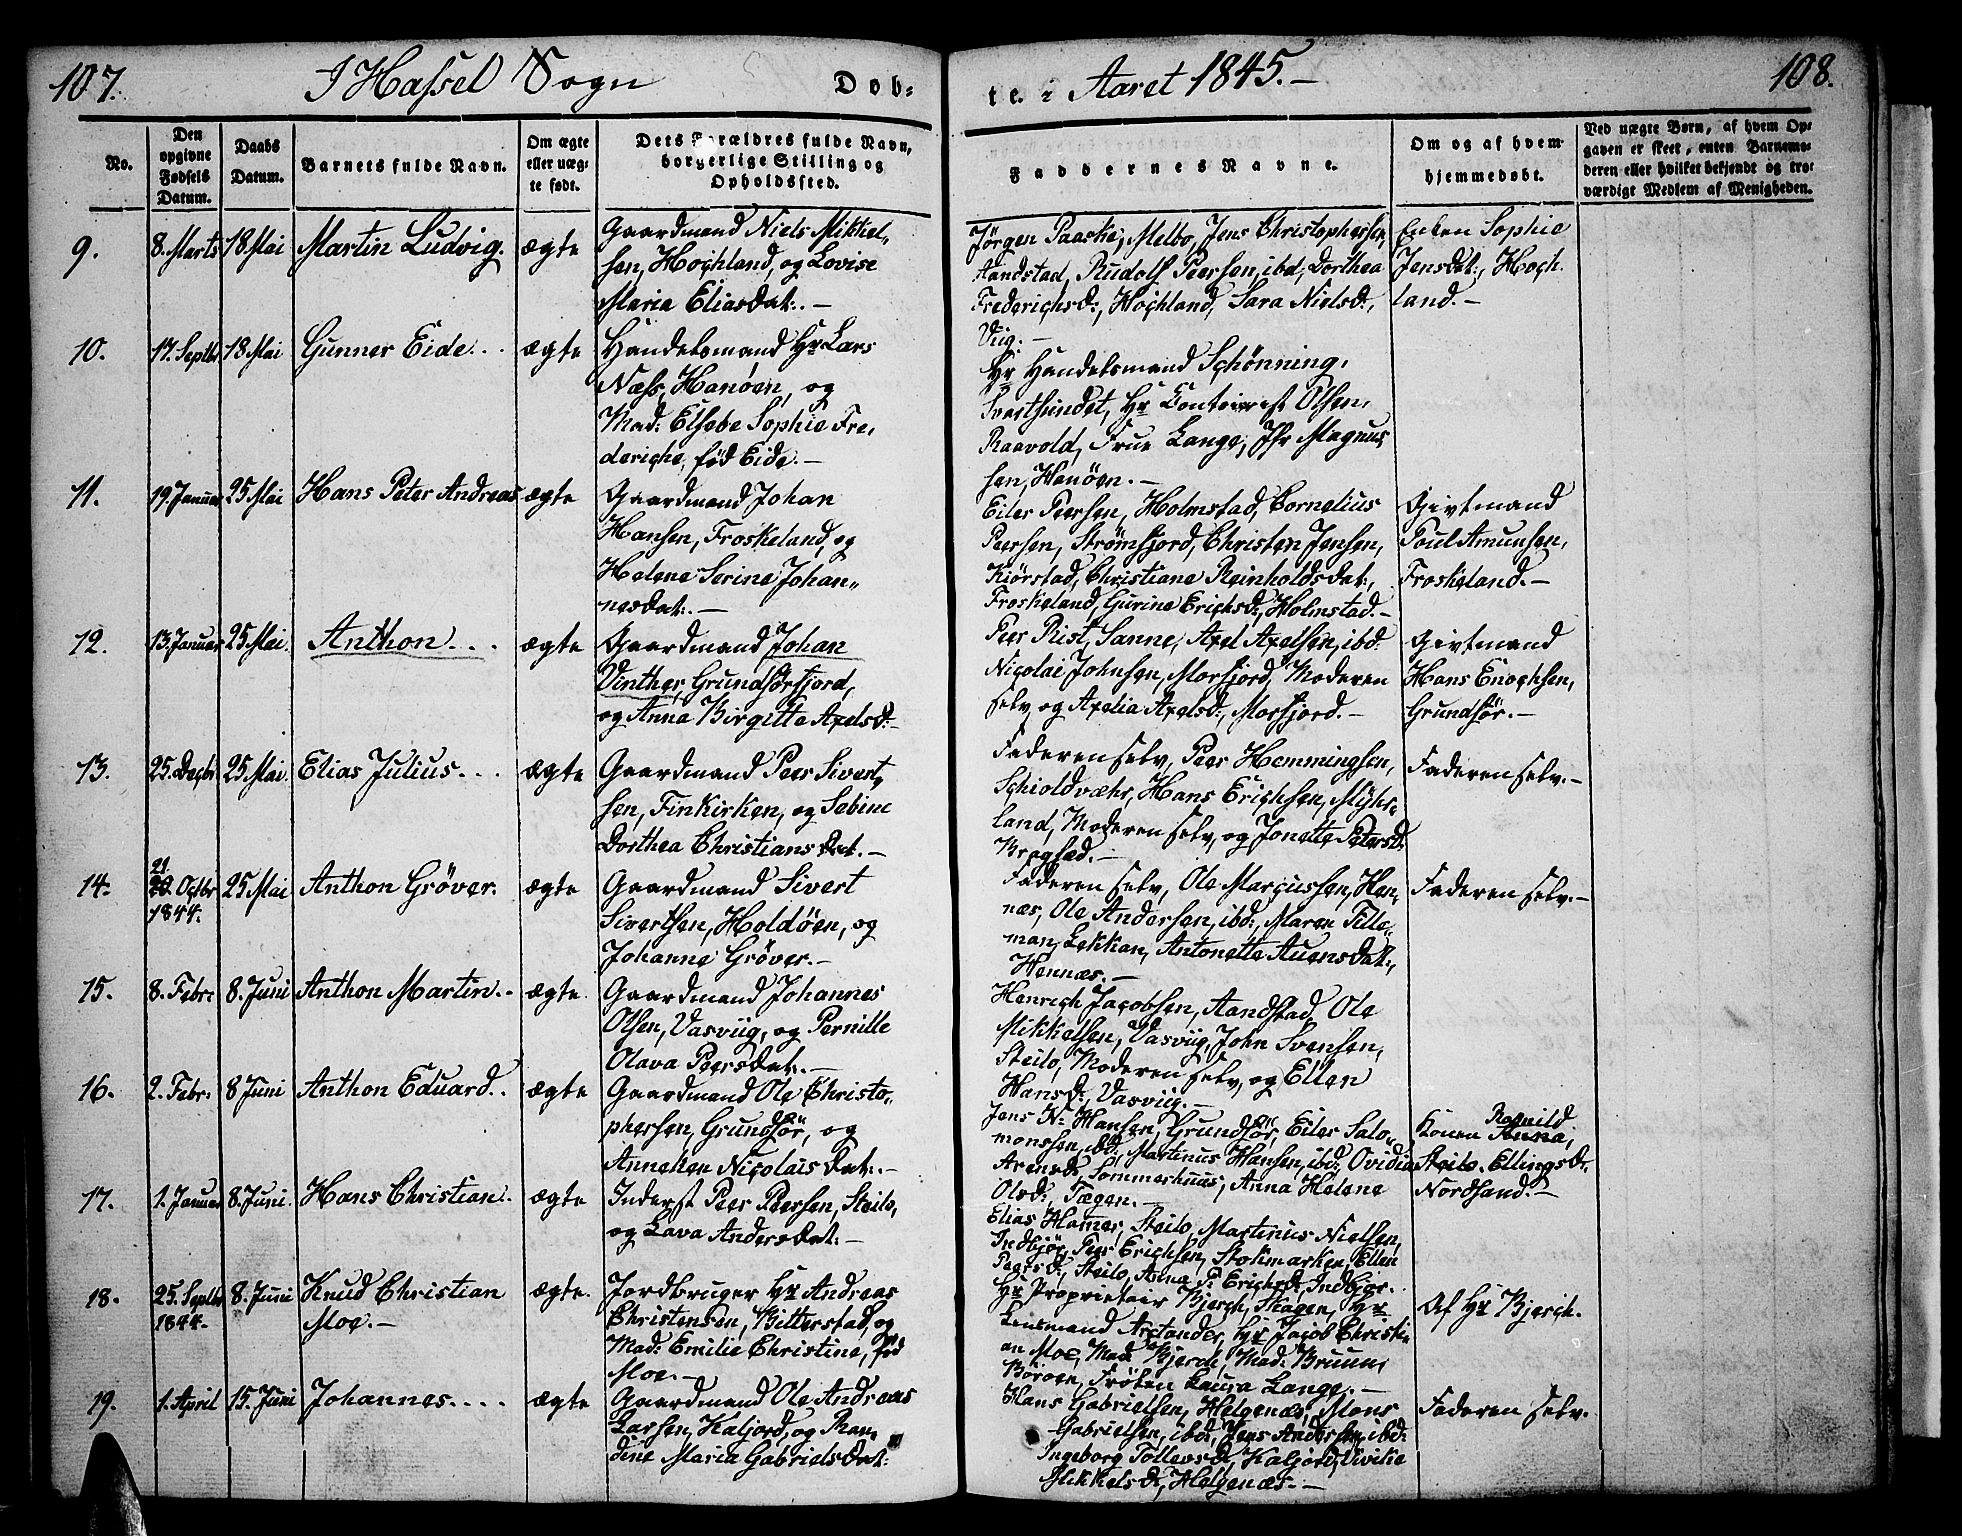 107.
I Hassel Sogn
Døb-
te i Aaret 1845.-
108.
No.
Den
opgivne
Fødsels
Datum.
Daabs
Datum.
Barnets fulde Navn.
Om ægte
eller uæg-
te født.
Dets Forældres fulde Navn,
borgerlige Stilling og
Opholdssted.
Faddernes Navne.
Om og af hvem
hjemmedøbt.
Ved uægte Børn, af hvem Op-
gaven er skeet, enten Barnemo-
deren eller hvilket bekjendt og tro-
værdigt Medlem af Menigheden.
9.
8. Marts
18 Mai
Martin Ludvig.
ægte
Gaardmand Niels Mikkel-
sen, Hochland, og Lovise
Maria Eliasdat:.-
Jørgen Paaske, Melbo, Jens Christophersen,
Sandstad, Rudolf Peersen, ibd, Dorthea
Frederichsd:, Hochland, Sara Nielsd:,
Viig.-
Enken Sophie
Jensdat:, Hoch-
land.-
10.
17. Septbr
18 Mai
Gunner Eide...
ægte
Handelsmand Hr Lars
Næss, Hanøen, og
Mad: Elsebe Sophie Fre-
deriche, fød Eide.-
Hr Handelsmand Schønning,
Svartsundet, Hr Contoirist Olsen,
Raavold, Frue Lange, Jfr Magnus-
sen, Hanøen.-
11.
19. Januar
25 Mai
Hans Peter Andreas
ægte
Gaardmand Johan
Hansen, Froskeland, og
Helene Serine Johan-
nesdat:.-
Eiler Peersen, Holmstad, Cornelius
Peersen, Strømfjord, Christen Jensen,
Kiørstad, Christiane Reinholdsdat:,
Froskeland, Gurine Erichsd:, Holmstad.-
Givtmand
Poul Amunsen,
Froskeland.-
12.
13. Januar
25 Mai.
Anthon...
ægte
Gaardmand Johan
Vinther, Grundførfjord,
og Anna Birgitte Axelsd:-
Peer Rist, Sanne, Axel Axelsen, ibd:
Nicolai Johnsen, Morfjord, Moderen
selv, og Axelia Axelsd:, Morfjord.-
Givtmand
Hans Enochsen,
Grundfør.-
13.
25. Decbr
25 Mai.
Elias Julius...
ægte
Gaardmand Peer Sivert-
sen, Finkirken, og Sabine
Dorthea Christiansdat.-
Faderen selv, Peer Hemmingsen,
Schioldvæhr, Hans Erichsen, Myhr-
land, Moderen selv, og Jonette Petersd:
Brogsed.-
Faderen selv.-
14.
21.
Octbr
1844.
25 Mai
Anthon Grøver.
ægte
Gaardmand Sivert
Sivertsen, Holdøen, og
Johanne Grøver.-
Faderen selv, Ole Marcussen, Hen-
næs, Ole Andersen, ibd:, Maren Tille-
man, Lekkan, Antonette Auensdat:,
Hennæs.-
Faderen selv.-
15.
8. Febr:
8. Juni
Anthon Martin..
ægte.
Gaardmand Johannes
Olsen, Vasviig, og Pernille
Olava Peersdat:.-
Henrich Jacobsen, Sandstad, Ole
Mikkelsen, Vasviig, John Svensen,
Steilo, Moderen selv, og Ellen
Hansd:, Vasviig.-
16.
2. Febr:
8 Juni
Anthon Eduard..
ægte
Gaardmand Ole Christo-
phersen, Grundfør, og
Anneken Nicolaisdat:.-
Jens N: Hansen, Grundfør, Eiler Salo-
monssen, ibd:, Martinus Hansen, ibd:, Ovidia
Arensd: Sommerhuus, Anna Helene
Olsd:, Tægen.-
Konen Anna,
Ragnild
Steilo. Ellingsd:
Nordsand.-
17.
1. Januar
8. Juni.
Hans Christian.
ægte
Inderst Peer Peersen, Steilo,
og Lava Andersdat:-
Elias Hamer, Steilo, Martinus Nielsen,
Indbjør, Peer Erichsen, Stokmarken, Ellen
Peersd:, Steilo, Anna P: Erichsd:, Indbjør.
18.
25. Septbr
1844.
8. Juni
Knud Christian
Moe.-
ægte.
Jordbruger Hr Andreas
Christensen, Bitterstad, og
Mad: Emilie Christine, fød
Moe.-
Hr Proprietair Bjerch, Skagen, Hr
Lensmand Arctander, Hr Jacob Christi-
an Moe, Mad: Bjerch, Mad: Bruun,
Børøen, Frøken Laura Lange.-
Af Hr Bjerch.
19.
1. April
15. Juni
Johannes....
ægte
Gaardmand Ole Andreas
Larsen, Kaljord, og Ran-
dine Maria Gabrielsdat:
Hans Gabrielsen, Helgenæs, Mons
Gabrielsen, ibd:, Jens Andersen, ibd:
Ingeborg Tollevsd:, Kaljord, Vivike
Mikkelsd:, Helgenæs.-
Faderen selv.